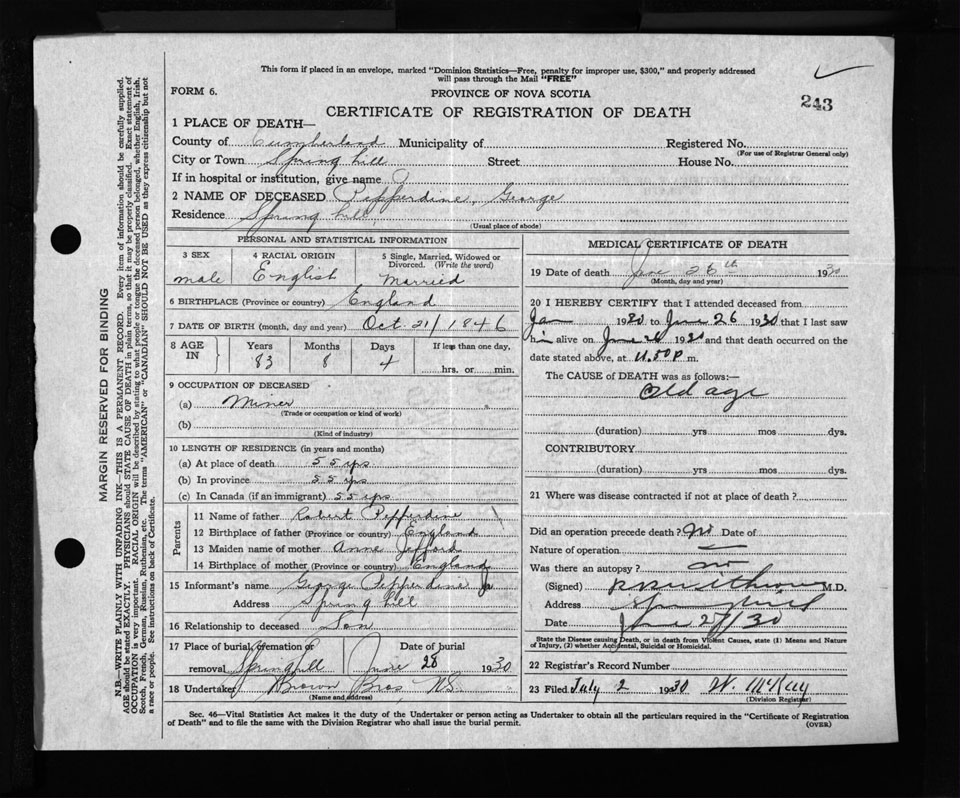 This form if placed in an envelope, marked "Dominion Statistics—Free, penalty for improper use, $300," and properly addressed
will pass through the Mail "FREE"
FORM 6.
PROVINCE OF NOVA SCOTIA
243
CERTIFICATE OF REGISTRATION OF DEATH
1 PLACE OF DEATH—
County of Cumberland Municipality of Registered No.
(For use of Registrar General only)
City or Town Spring hill Street House No.
If in hospital or institution, give name
2 NAME OF DECEASED Pepperdine, George
Residence Spring hill
(Usual place of abode)
PERSONAL AND STATISTICAL INFORMATION
3 SEX 4 RACIAL ORIGIN 5 Single, Married, Widowed or
Divorced. (Write the word)
male English Married
6 BIRTHPLACE (Province or country) England
7 DATE OF BIRTH (month, day and year) Oct. 21/1846
8 AGE IN Years Months Days If less than one day.
83 8 4 hrs. or min.
9 OCCUPATION OF DECEASED
(a) Miner
(Trade or occupation or kind of work)
(b)
(Kind of industry)
10 LENGTH OF RESIDENCE (in years and months)
(a) At place of death 55 yrs
(b) In province 55 yrs
(c) In Canada (if an immigrant) 55 yrs
Parents
11 Name of father Robert Pepperdine
12 Birthplace of father (Province or country) England
13 Maiden name of mother Anne Jefford
14 Birthplace of mother (Province or country) England
15 Informant's name George Pepperdine Jr
Address Spring hill
16 Relationship to deceased Son
17 Place of burial, cremation or Date of burial
removal Springhill June 28 1930
18 Undertaker Brown Bros NS.
(Name and address)
MEDICAL CERTIFICATE OF DEATH
19 Date of death June 26th 1930
(Month, day and year)
20 I HEREBY CERTIFY that I attended deceased from
Jan 1930 to June 26 1930 that I last saw
him alive on June 26 1930 and that death occurred on the
date stated above, at m.
The CAUSE of DEATH was as follows:—
Old age
(duration) yrs mos dys.
CONTRIBUTORY
(duration) yrs mos dys.
21 Where was disease contracted if not at place of death?
Did an operation precede death? No Date of
Nature of operation
Was there an autopsy? no
(Signed) M.D.
Address Springhill
Date June 27/30
State the Disease causing Death, or in death from Violent Causes, state (1) Means and Nature
of Injury, (2) whether Accidental, Suicidal or Homicidal.
22 Registrar's Record Number
23 Filed July 2 1930 W. McKay
(Division Registrar)
Sec. 46—Vital Statistics Act makes it the duty of the Undertaker or person acting as Undertaker to obtain all the particulars required in the "Certificate of Registration
of Death" and to file the same with the Division Registrar who shall issue the burial permit.
(OVER)
MARGIN RESERVED FOR BINDING
N.B.—WRITE PLAINLY WITH UNFADING INK—THIS IS A PERMANENT RECORD. Every item of information should be carefully supplied.
AGE should be stated EXACTLY. PHYSICIANS should STATE CAUSE OF DEATH in plain terms, so that it may be properly classified. Exact statement of
OCCUPATION is very important. RACIAL ORIGIN will be described by stating to what people or tongue the deceased person belonged, whether English, Irish,
Scotch, French, German, Russian, Ruthenian, etc. The terms "AMERICAN" or "CANADIAN" SHOULD NOT BE USED as they express citizenship but not
a race or people. See instructions on back of Certificate.